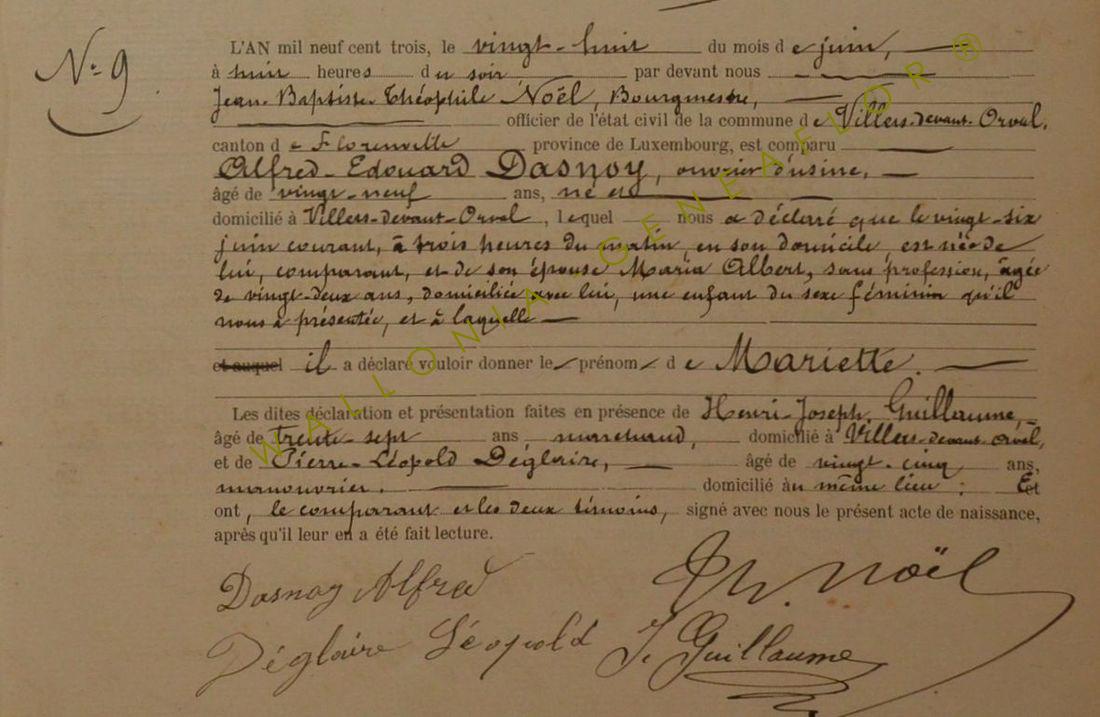 N° 9
L'AN mil neuf cent trois, le vingt-huit du mois de juin,
à huit heures du soir par devant nous
Jean-Baptiste-Théophile Noël, Bourgmestre,
officier de l'état civil de la commune de Villers-devant-Orval,
canton de Florenville province de Luxembourg, est comparu
Alfred-Edouard Dasnoy, ouvrier d'usine,
âgé de vingt-neuf ans, né
domicilié à Villers-devant-Orval, lequel nous a déclaré que le vingt-six
juin courant, à trois heures du matin, en son domicile est née de
lui, comparant, et de son épouse Maria Albert, sans profession, âgée
de vingt-deux ans, domiciliée avec lui, une enfant du sexe féminin qu'il
nous a présentée, et à laquelle
et auquel il a déclaré vouloir donner le prénom de Mariette.
Les dites déclaration et présentation faites en présence de Henri-Joseph Guillaume,
âgé de trente-sept ans, marchand, domicilié à Villers-devant-Orval,
et de Pierre-Léopold Déglaire, âgé de vingt-cinq ans,
manouvrier. domicilié au même lieu ; Et
ont, le comparant et les deux témoins, signé avec nous le présent acte de naissance,
après qu'il leur en a été fait lecture.
Dasnoy Alfred Th. Noël
Déglaire Léopold J. Guillaume
WALLONIA GENEAFLOR ®